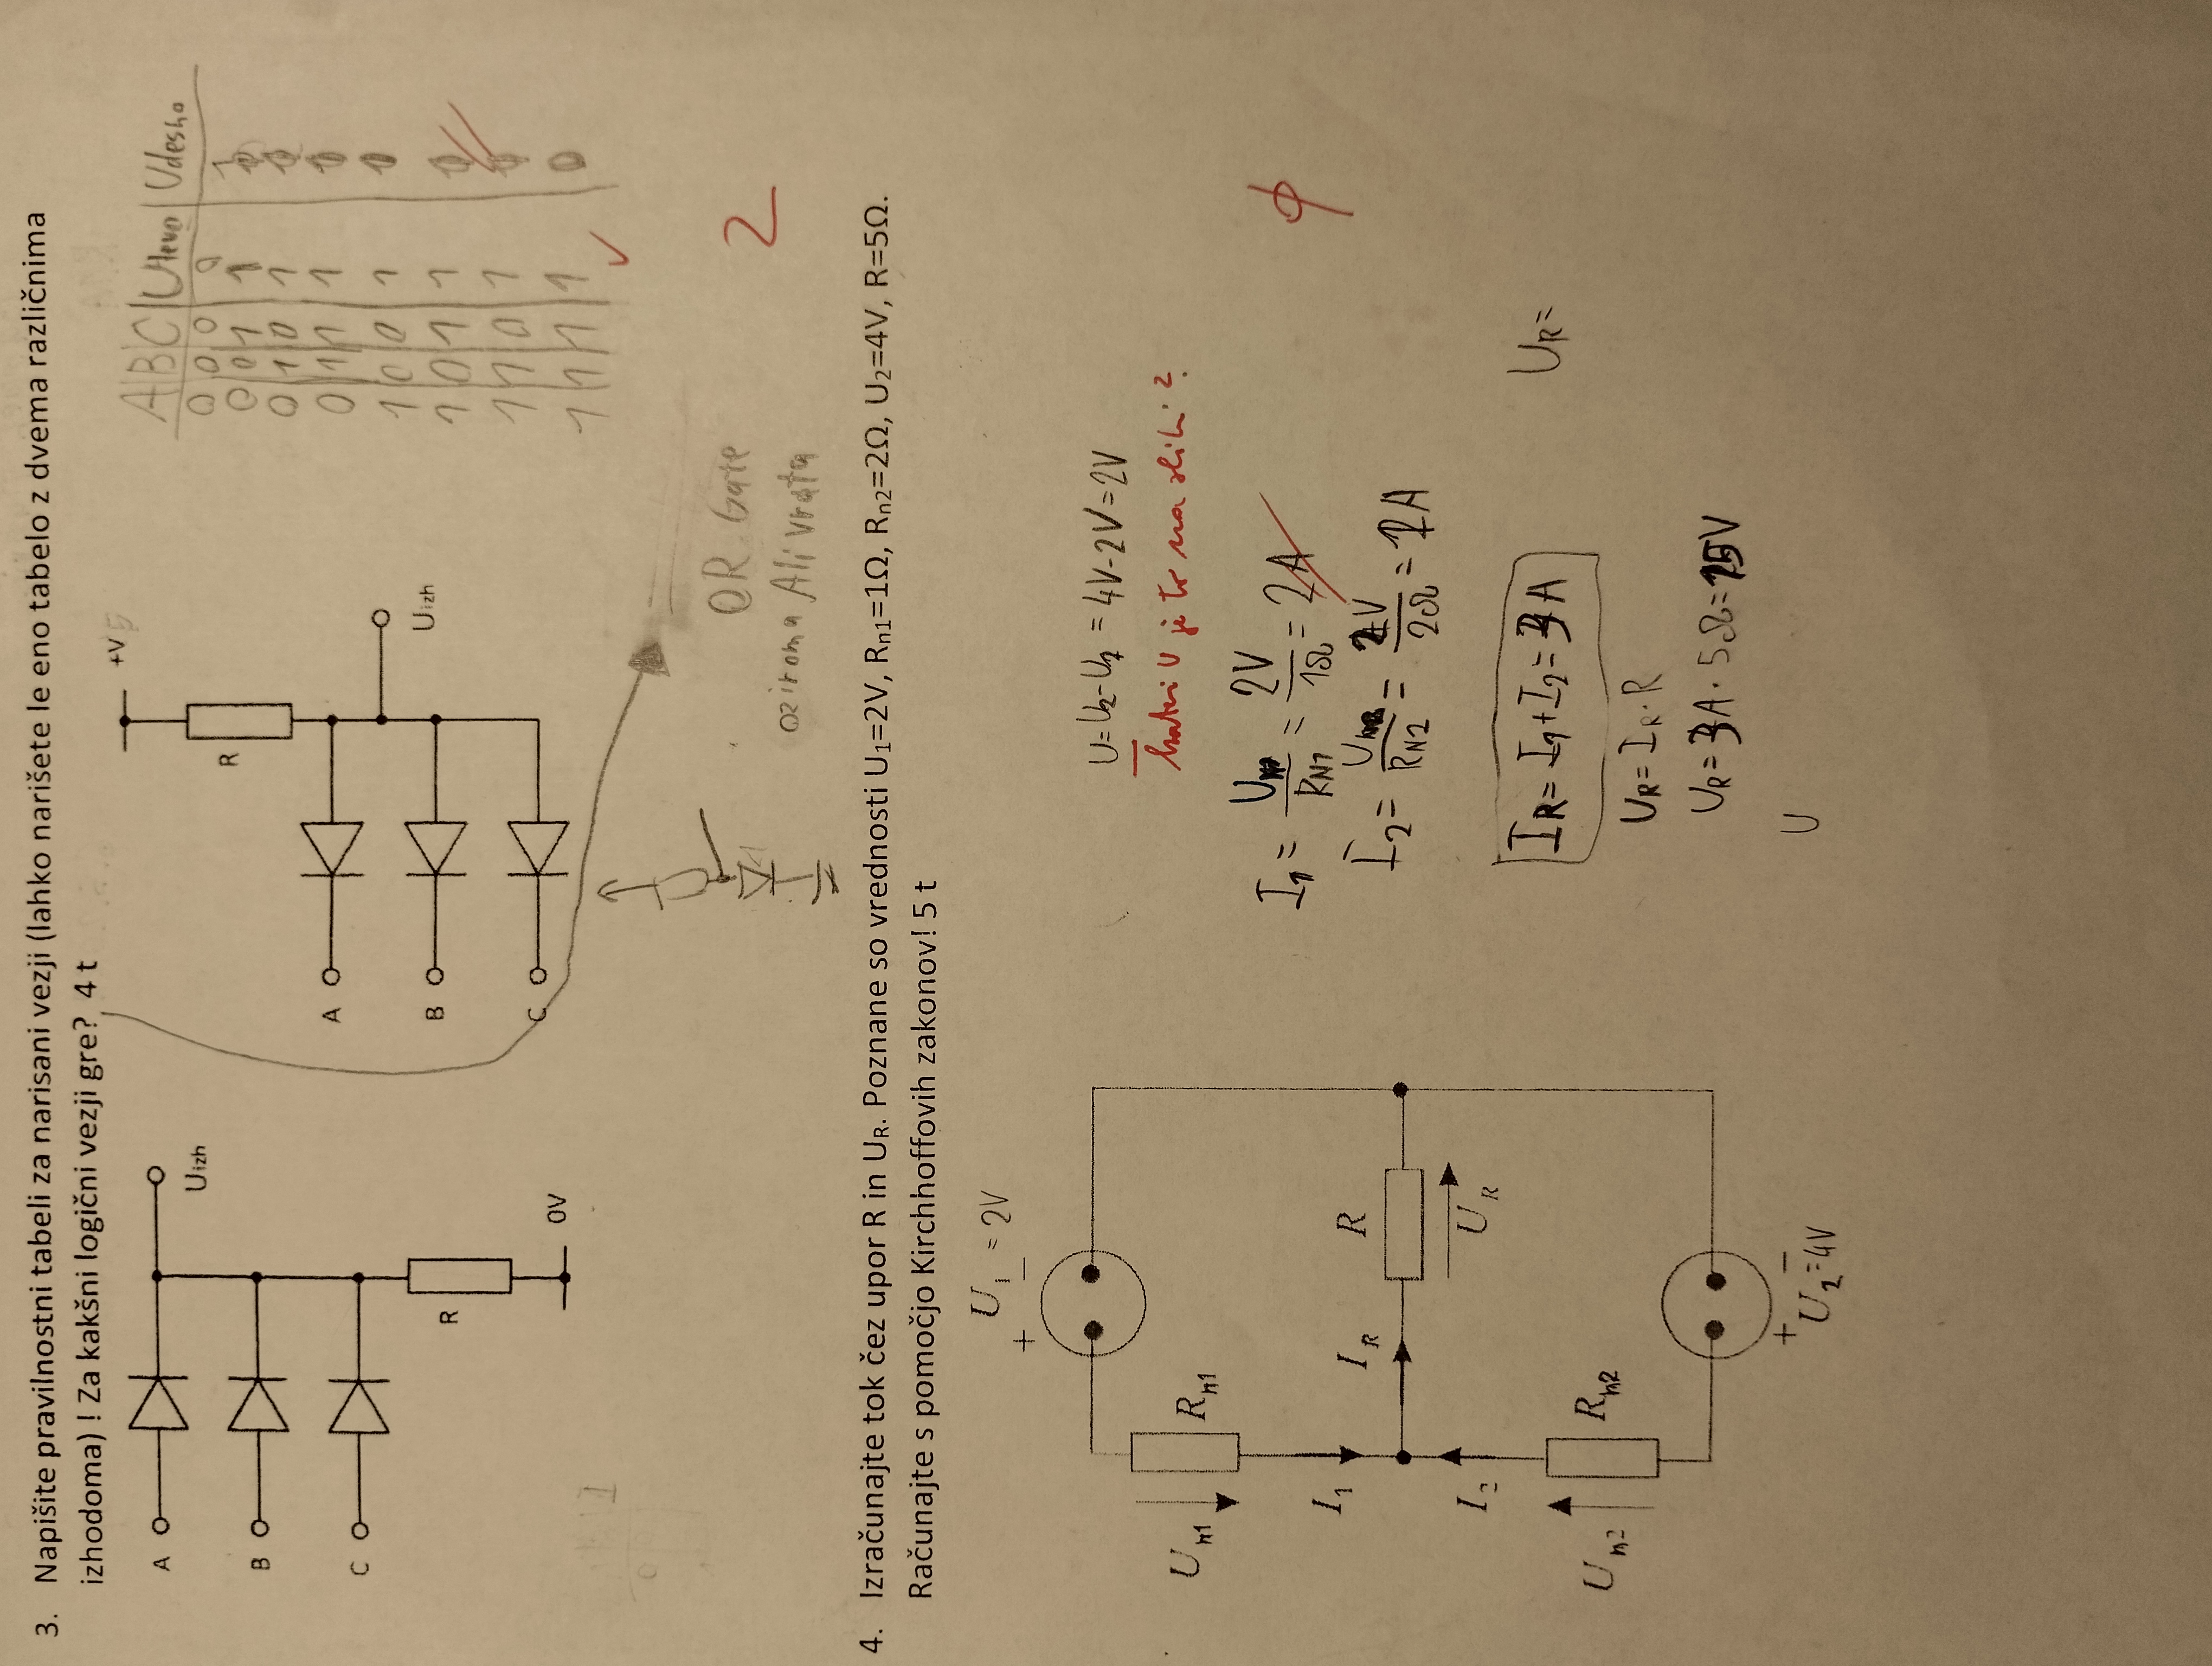 3. Napišite pravilnostni tabeli za narisani vezji (lahko narišete le eno tabelo z dvema različnima
izhodoma) ! Za kakšni logični vezji gre? 4 t
A
Uizh
B
C
R
0V
+V
R
A
Uizh
B
C
A B C Ulevo Udesno
0 0 0 0 1
0 0 1 1
0 1 0 1
0 1 1 1
1 0 0 1
1 0 1 1
1 1 0 1
1 1 1 1 0
OR Gate
oziroma Ali vrata
2
4. Izračunajte tok čez upor R in UR. Poznane so vrednosti U1=2V, Rn1=1Ω, Rn2=2Ω, U2=4V, R=5Ω.
Računajte s pomočjo Kirchhoffovih zakonov! 5 t
U1 = 2V
+ −
Un1
Rn1
I1
IR
R
UR
I2
Un2
Rn2
+ −
U2=4V
U=U2-U1 = 4V-2V=2V
kateri U je to na sliki?
I1= / RN1 = 2V / 1Ω = 2A
I2= / RN2 = V / 2Ω = A
IR= I1+I2= 3A
UR=
UR= IR·R
UR= 3A · 5Ω= 15V
U